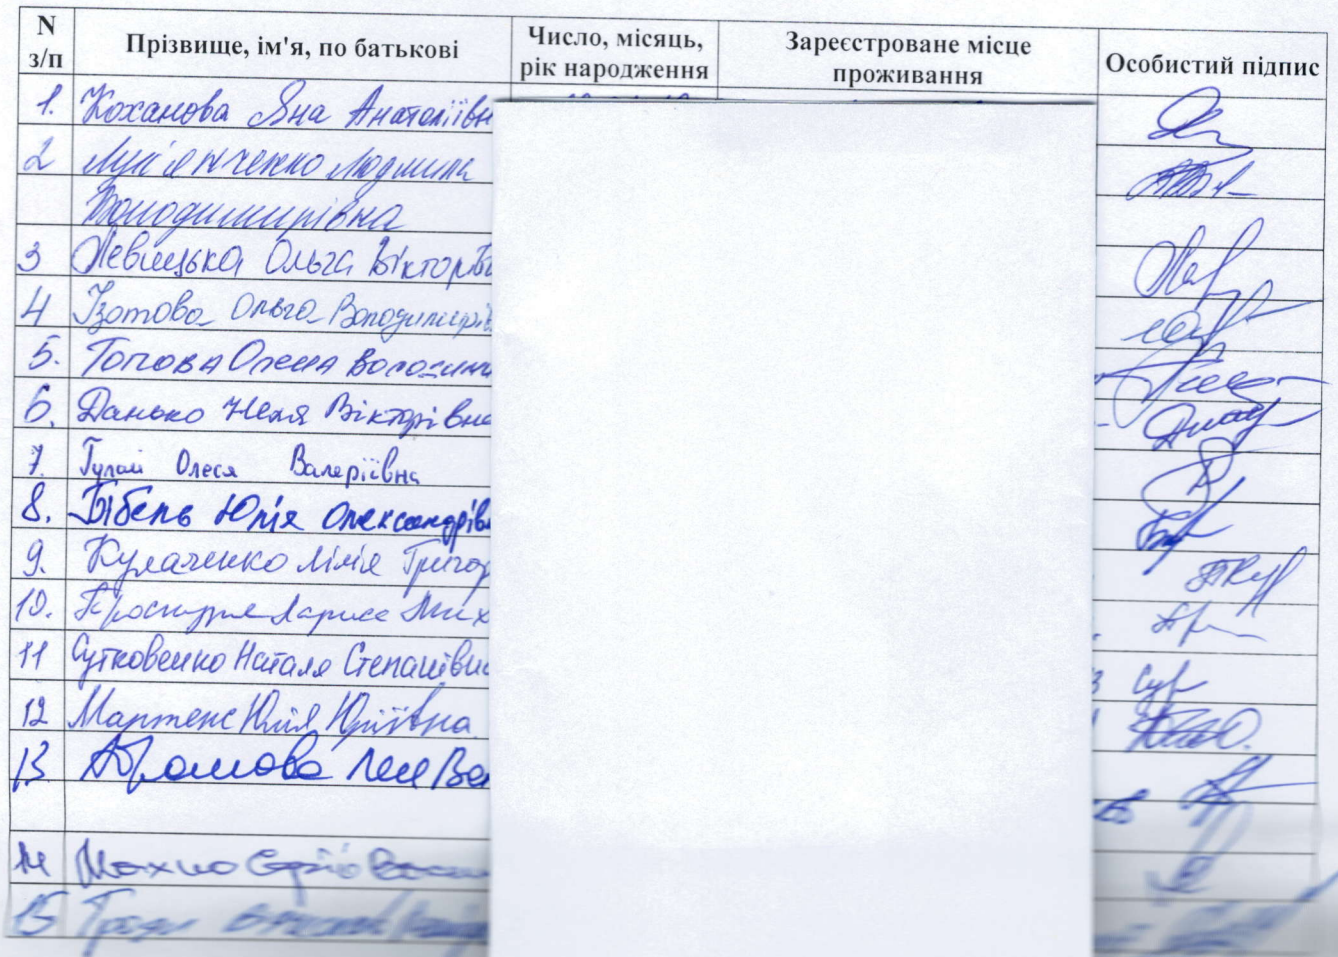 N з/п Прізвище, ім'я, по батькові Число, місяць, рік народження Зареєстроване місце проживання Особистий підпис
1. Коханова Яна Анатоліївн
2 Лук'янченко Людмила
Володимирівна
3 Левицька Ольга Вікторів
4 Ізотова Ольга Володимирів
5. Попова Олена Володими
6. Данько Неля Вікторівна
7. Гулай Олеся Валеріївна
8. Бібель Юлія Олександрівн
9. Кулаченко Лілія Григор
10. Лариса Мих
11 Сутковенко Наталя Степанівна
12 Мартенс Юлія Юріївна
13
14 Махно Сергій
15